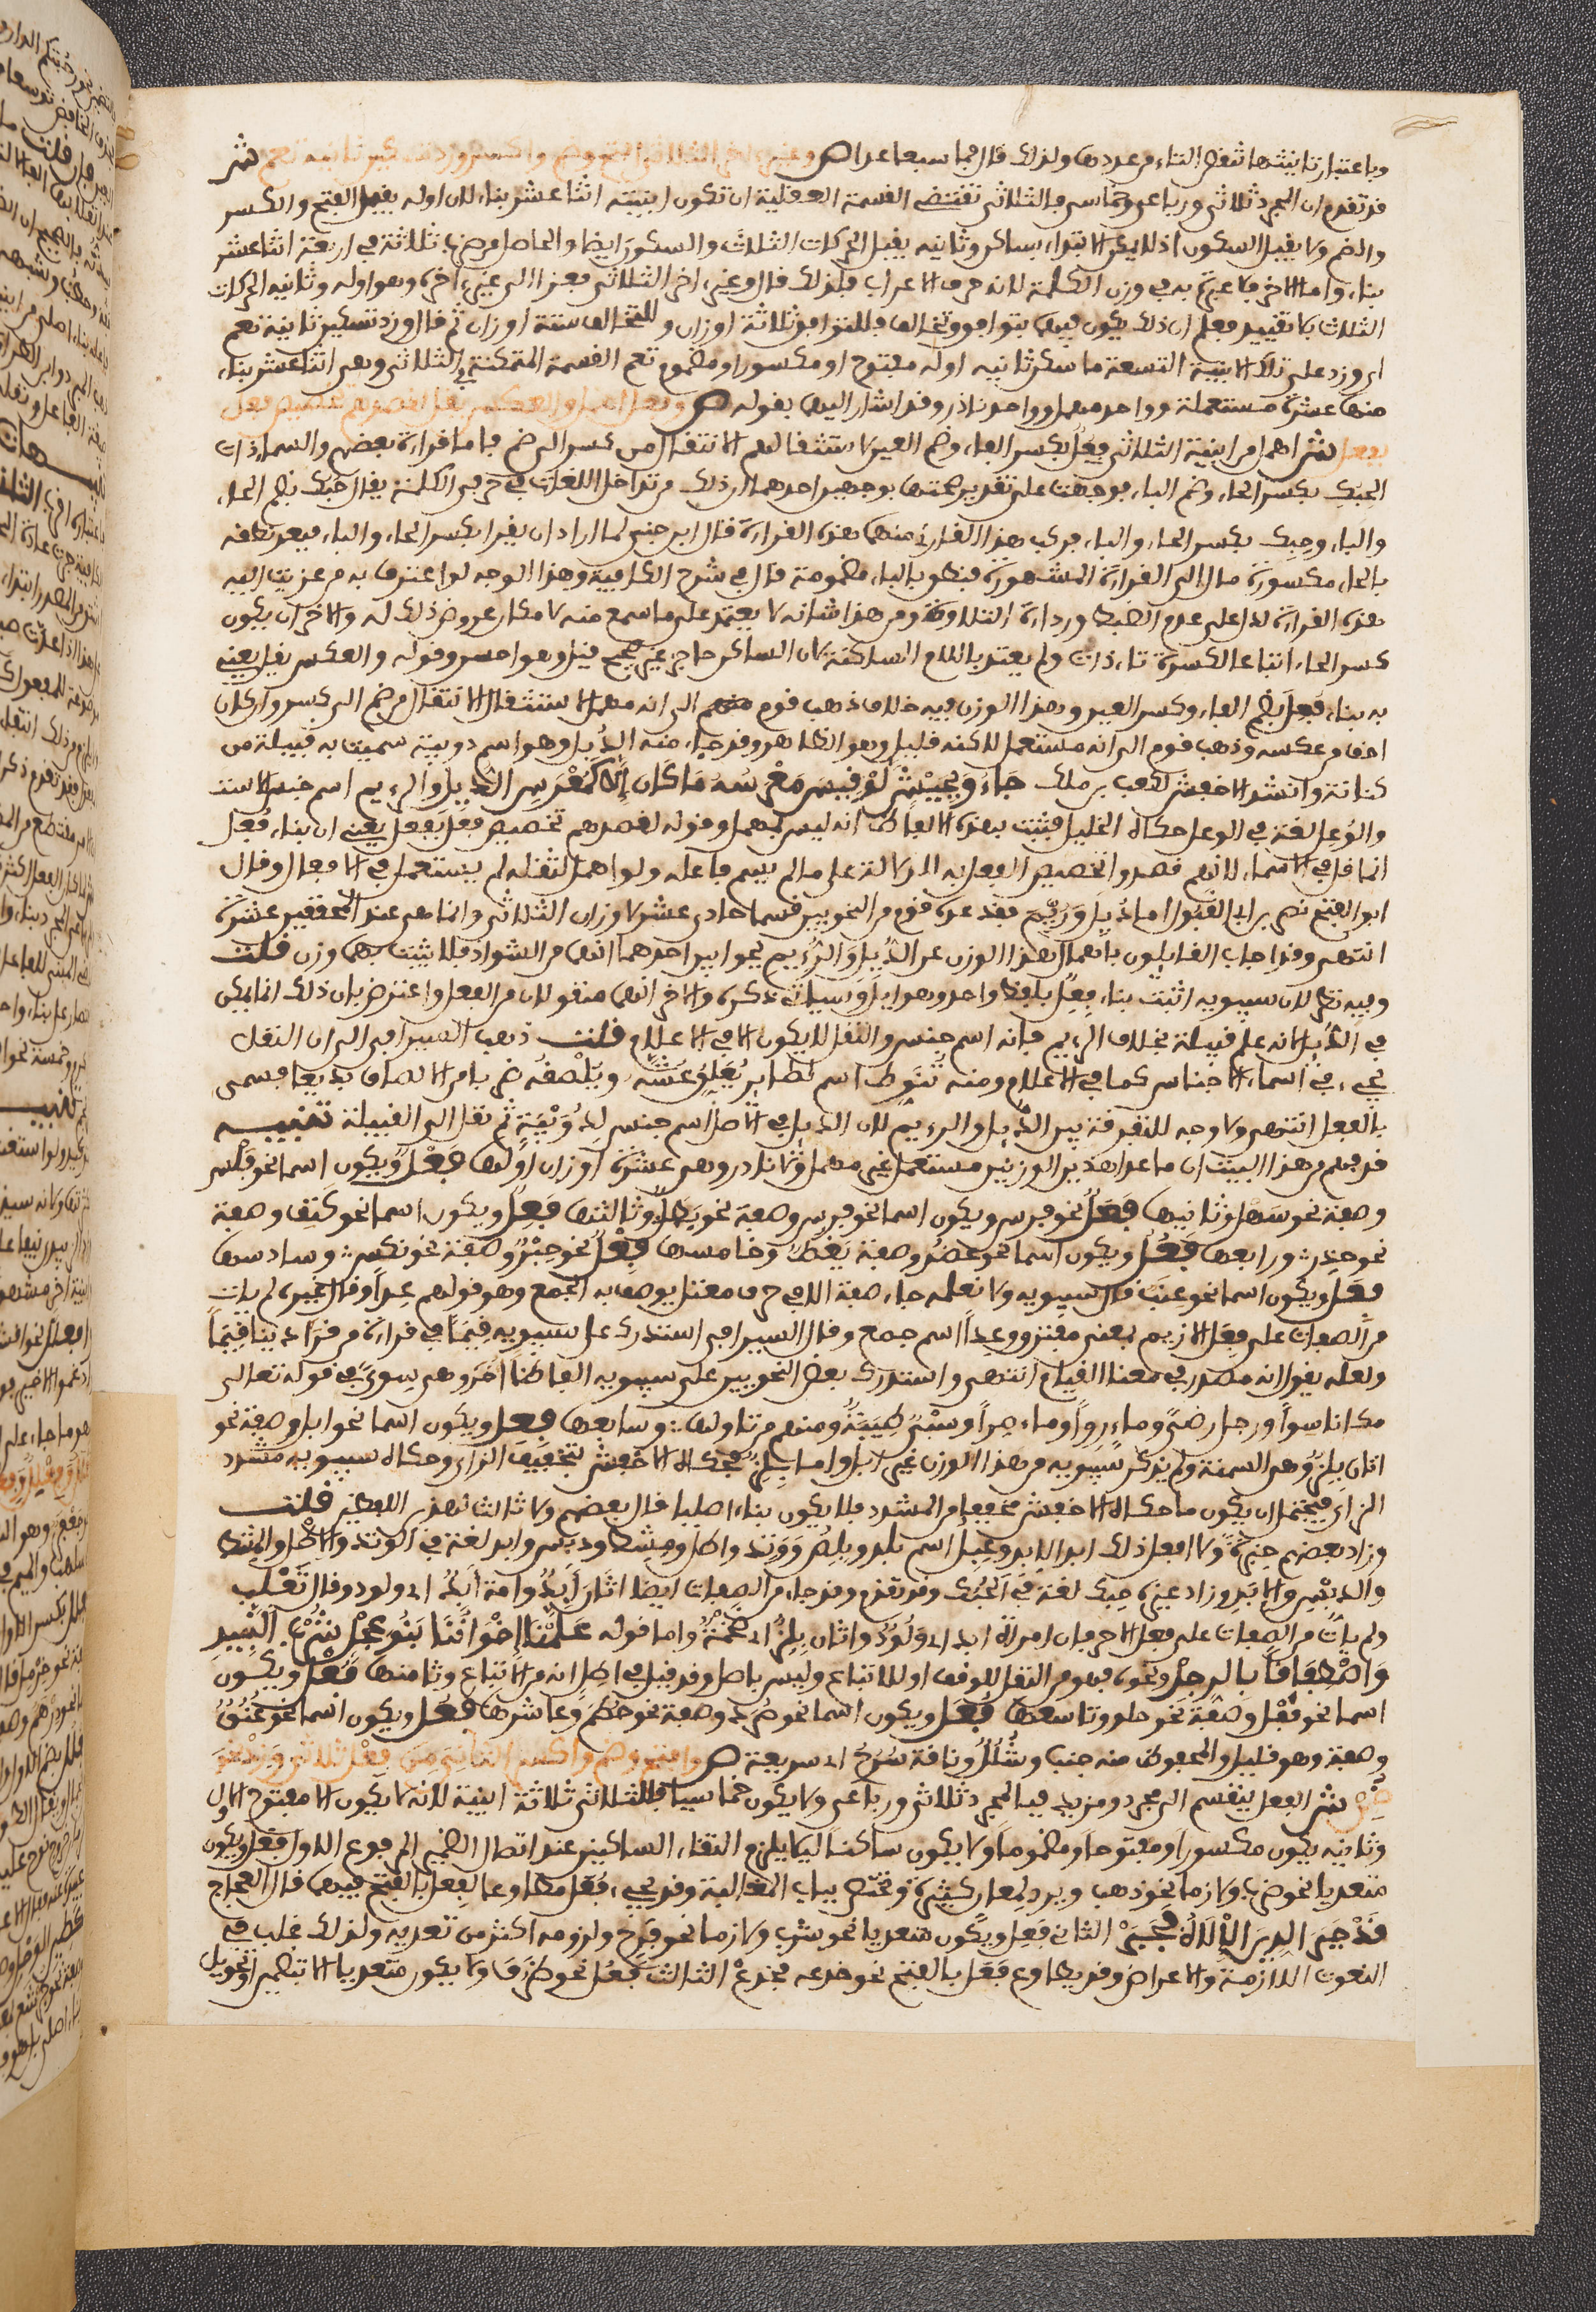 وباعتبار تانيثها تسقط التاء من عددها ولذلك قال فما سبعا عدا ص وغير اخر الثلاثي افتح وضم واكسر وزد تسكين ثانيه تعم ش
قد تقدم ان المجرد ثلاثي ورباعي وخماسي فالثلاثي تقتضي القسمة العقلية ان تكون ابنيته اثنا عشر بناء لان اوله يقبل الفتح والكسر
والضم ولا يقبل السكون اذ لا يمكن الابتداء بساكن وثانيه يقبل الحركات الثلاث والسكون ايضا والحاصل من ضرب ثلاثة في اربعة اثنا عشر
بناء واما الاخر فلا عبرة به في وزن الكلمة لانه حرف الاعراب فلذلك قال وغير اخر الثلاثي فعزا الى غير اخره وهو اوله وثانيه الحركات
الثلاث بلا تقييد فعلم ان ذلك يكون فيهما بتوافق وتخالف فللتوافق ثلاثة اوزان وللتخالف ستة اوزان ثم قال وزد تسكين ثانيه تعم
اي وزد على تلك الابنية التسعة ما سكن ثانيه اوله مفتوح او مكسور او مضموم تعم القسمة الممكنة في الثلاثي وهي اثنا عشر بناء
منها عشرة مستعملة وواحد مهمل وواحد نادر وقد اشار اليهما بقوله ص وفعل اهمل والعكس يقل لقصدهم تخصيص فعل
بفعل ش اهمل من ابنية الثلاثي فِعُل بكسر الفاء وضم العين لاستثقالهم الانتقال من كسر الى ضم فاما قراءة بعضهم والسماء ذات
الحِبُك بكسر الحاء وضم الباء فوجهت على تقدير صحتها بوجهين احدهما ان ذلك من تداخل اللغات في حرفي الكلمة يقال حُبُك بضم الحاء
والباء وحِبِك بكسر الحاء والباء فركب هذا القارئ منهما هذه القراءة قال ابن جني لما اراد ان يقرا بكسر الحاء والباء فبعد نطقه
بالحاء مكسورة مال الى القراءة المشهورة فنطق بالباء مضمومة قال في شرح الكافية وهذا الوجه لو اعترف به من عزيت اليه
هذه القراءة لدل على عدم الضبط ورداءة التلاوة ومن هذا شانه لا يعتمد على ما سمع منه لامكان عروض ذلك له والاخر ان يكون
كسر الحاء اتباعا لكسرة تاء ذات ولم يعتد باللام الساكنة لان الساكن حاجز غير حصين قيل وهو احسن وقوله والعكس يقل يعني
به بناء فُعِل بضم الفاء وكسر العين وهذا الوزن فيه خلاف ذهب قوم منهم الى انه مهمل لاستثقال الانتقال من ضم الى كسر وان كان
اخف من عكسه وذهب قوم الى انه مستعمل لاكنه قليل وهو الظاهر وقد جاء منه الدُّئِل وهو اسم دويبة سميت به قبيلة من
كنانة وانشد الاخفش لكعب بن ملك جاءُو بِجَيْشٍ لَوْ قِيسَ مُعْرَسُهُ مَا كَانَ إِلَّا كَمُعْرَسِ الدُّئِلِ والرُّئِم اسم جنس للاست
والوُعِل لغة في الوعل حكاه الخليل فثبت بهذه الالفاظ انه ليس بمهمل وقوله لقصدهم تخصيص فعل بفعل يعني ان بناء فُعِل
انما قل في الاسماء لانهم قصدوا تخصيص الفعل به للدلالة على ما لم يسم فاعله ولو اهمل لثقله لم يستعمل في الافعال وقال
ابو الفتح نصر بن ابي الفنون اما دُئِل وَرُئِم فقد عده قوم من النحويين قسما حادي عشر لاوزان الثلاثي وانما هي عند المحققين عشرة
انتهى وقد اجاب القايلون باهمال هذا الوزن عن الدُّئِل وَالرُّئِم بجوابين احدهما انهما من الشواذ فلا يثبت بهما وزن قلت
وفيه نظر لان سيبويه اثبت بناء فِعِل بلفظ واحد وهو ابل وسياتي ذكره والاخر انهما منقولان من الفعل واعترض بان ذلك انما يمكن
في الدئل لانه علم قبيلة بخلاف الرئم فانه اسم جنس والنقل لا يكون الا في الاعلام قلت ذهب السيرافي الى ان النقل
يجيء في اسماء الاجناس كما في الاعلام ومنه تُنَوِّط اسم لطاير يُعَلِّقُ عُشَّه
بالفعل انتهى ولا وجه للتفرقة بين الدئل والرئم لان الدئل في الاصل اسم جنس لِدُوَيْبَّةٍ ثم نقل الى القبيلة تنبيه
قد فهم من هذا البيت ان ما عدا هذين الوزنين مستعمل غير مهمل ولا نادر وهي عشرة اوزان اولها فَعْل ويكون اسما نحو فَلْس
وصفة نحو سَهْل وثانيها فَعَل نحو فرس ويكون اسما نحو فرس وصفة نحو بَطَل وثالثها فَعِل ويكون اسما نحو كَتِف وصفة
نحو حَذِر ورابعها فَعُل ويكون اسما نحو عَضُد وصفة نحو يَقُظ وخامسها فِعْل نحو جِذْع وصفة نحو نِكْس وسادسها
فِعَل ويكون اسما نحو عِنَب قال سيبويه ولا نعلمه جاء صفة الا في حرف معتل يوصف به الجمع وهو قولهم عِدًى وقال غيره لم يات
من الصفات على فِعَل الا زيم بمعنى متفرق وعِدًى اسم جمع وقال السيرافي استدرك على سيبويه قِيَمًا في قراءة من قرا دينا قِيَمًا
ولعله يقول انه مصدر في معنى القيام انتهى واستدرك بعض النحويين على سيبويه الفاظا اخر وهي سِوًى في قوله تعالى
مكانا سوًى ورجل رِضًى وماء رِوًى وماء صِرًى وسَبْيٌ طِيَبَةٌ ومنهم من تاولها وسابعها فِعِل ويكون اسما نحو ابل وصفة نحو
اتان بِلِز وهي السمينة ولم يذكر سيبويه من هذا الوزن غير ابل واما بِلِز فحكاه الاخفش بتخفيف الزاي وحكاه سيبويه مشدد
الزاي فيحتمل ان يكون ما حكاه الاخفش مخففا من المشدد فلا يكون بناء اصليا قال بعضهم ولا ثالث لهذين اللفظين قلت
وزاد بعضهم حِبِرَة ولا افعل ذلك ابد الابد وعِيِل اسم بلد وبِلِص وَوِتِد واطل ومِشِط ودِبِس وابد لغة في الوتد والاطل والمشط
والدبس والابد وزاد غيره حبك لغة في الحُبُك وقد تقدم وقد جاء من الصفات ايضا اتان إبِدٌ وامة إبِدٌ اي ولود وقال ثَعْلَب
ولم يات من الصفات على فعل الا حرفان امراة ابد اي وَلُودٌ واتان بِلِزٌ اي ضخمة واما قوله عَلَّمَنَا إِخْوَانُنَا بَنُو عِجِلْ شُرْبَ النَّبِيذِ
وَاصْطِفَافًا بِالرِّجِلْ ونحوه فهو من النقل للوقف او للاتباع وليس باصل وقد قيل في اطل انه من الاتباع وثامنها فُعْل ويكون
اسما نحو قُفْل وصفة نحو حلو وتاسعها فُعَل ويكون اسما نحو صُرَد وصفة نحو حُطَم وعاشرها فُعُل ويكون اسما نحو عُنُقٌ
وصفة وهو قليل والمحفوظ منه جنب وشُلُلٌ وناقة سُرُحٌ اي سريعة ص وافتح وضم واكسر الثاني من فعل ثلاثي وزد نحو
ضمن ش الفعل ينقسم الى مجرد ومزيد فيه فالمجرد ثلاثي ورباعي ولا يكون خماسيا فللثلاثي ثلاثة ابنية لانه لا يكون الا مفتوح الاول
وثانيه يكون مكسورا ومفتوحا ومضموما ولا يكون ساكنا ليلا يلزم التقاء الساكنين عند اتصال الضمير المرفوع الاول فَعَل ويكون
متعديا نحو ضرب ولازما نحو ذهب ويرد لمعان كثيرة ويختص بباب المغالبة وقد يجيء فَعَل مطاوعا لِفَعَل بالفتح فيهما قال العجاج
قَدْ جَبَرَ الدِّينَ الْإِلَاهُ فَجَبَرْ الثاني فَعِل ويكون متعديا نحو شرب ولازما نحو فَرِح ولزومه اكثر من تعديه ولذلك غلب في
النعوت اللازمة والاعراض وقد يطاوع فَعَل بالفتح نحو خدعه فخدع الثالث فَعُل نحو ظَرُف ولا يكون متعديا الا بتضمين او تحويل